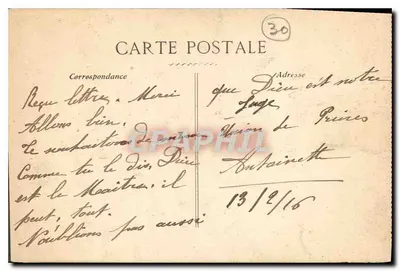 30
CARTE POSTALE
Correspondance
Adresse
Reçu lettre. Merci
Allons bien.
Te souhaitons de même
Comme tu le dis, Dieu
est le Maître, il
peut, tout.
N'oublions pas aussi
que Dieu est notre
Juge
Union de Prières
Antoinette
13/2/16